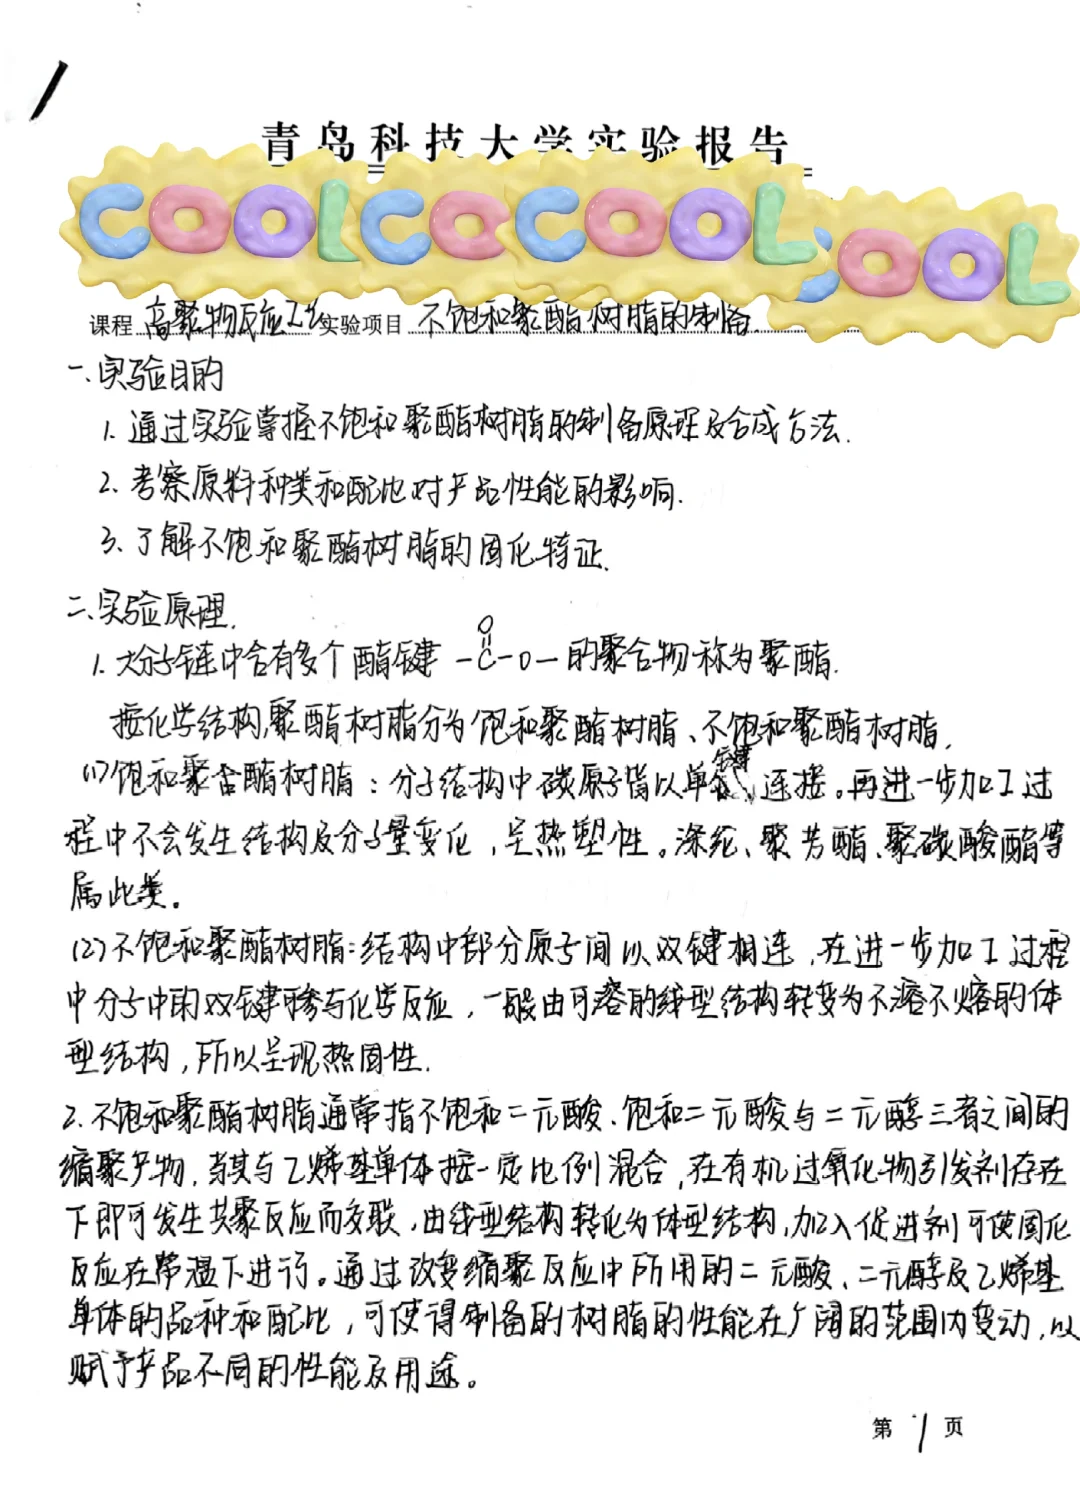 青岛科技大学实验报告
COOL CO COOL OOL
课程 高聚物反应工艺 实验项目 不饱和聚酯树脂的制备
一、实验目的
1. 通过实验掌握不饱和聚酯树脂的制备原理及合成方法.
2. 考察原料种类和配比对产品性能的影响.
3. 了解不饱和聚酯树脂的固化特征.
二、实验原理.
1. 大分子链中含有多个酯键 -C(=O)-O- 的聚合物称为聚酯.
按化学结构,聚酯树脂分为饱和聚酯树脂、不饱和聚酯树脂.
(1)饱和聚合酯树脂:分子结构中碳原子皆以单键连接。再进一步加工过
程中不会发生结构及分子量变化,呈热塑性。涤纶、聚芳酯、聚碳酸酯等
属此类。
(2)不饱和聚酯树脂:结构中部分原子间以双键相连,在进一步加工过程
中分子中的双键可参与化学反应,一般由可溶的线型结构转变为不溶不熔的体
型结构,所以呈现热固性.
2. 不饱和聚酯树脂通常指不饱和二元酸、饱和二元酸与二元醇三者之间的
缩聚产物,当其与乙烯基单体按一定比例混合,在有机过氧化物引发剂存在
下即可发生共聚反应而交联,由线型结构转化为体型结构,加入促进剂可使固化
反应在常温下进行。通过改变缩聚反应中所用的二元酸、二元醇及乙烯基
单体的品种和配比,可使得制备的树脂的性能在广阔的范围内变动,以
赋予产品不同的性能及用途。
第 1 页